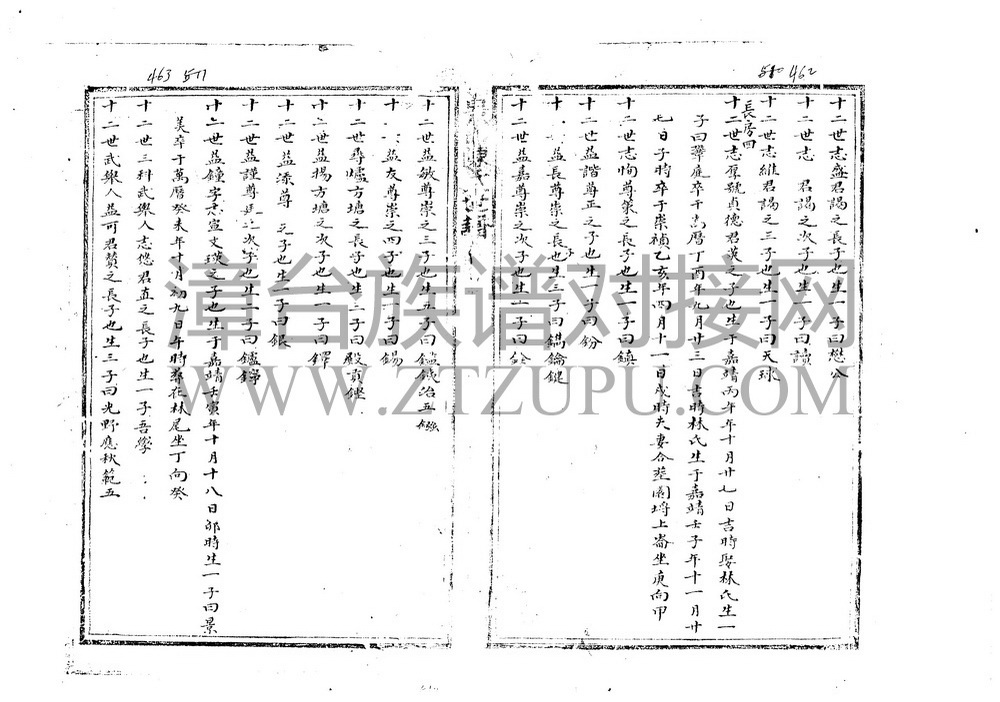 463 511
510 462
十二世志盛君謁之長子也生一子曰懋公
十二世志 君謁之次子也生 子曰讀
十二世志維君謁之三子也生一子曰天球
長房四
十二世志厚號貞德君漢之子也生于嘉靖丙午年十月廿七日吉時娶林氏生一
子曰肇 卒于萬曆丁酉年九月廿三日吉時林氏生于嘉靖壬子年十一月廿
七日子時卒于崇禎乙亥年四月十一日戌時夫妻合葬園 上崙坐庚向甲
十二世志恂尊策之長子也生一子曰鎮
十二世益諧尊正之子也生一子曰鈖
十 益長尊崇之長也生三子曰鐫鑰鍵
十二世益嘉尊崇之次子也生一子曰
十二世益敏尊崇之三子也生五子曰 鉞治五
十 益友尊崇之四子也生一子曰錫
十二世尋爐方塘之長子也生二子曰殿貢
十二世益揚方塘之次子也生一子曰鐸
十二世益添尊 之子也生一子曰銀
十二世益謹尊 之次子也生二子曰鑪錦
十二世益鐘字志宣文瑛之子也生于嘉靖壬寅年十月十八日卯時生一子曰景
美卒于萬曆癸未年十月初九日午時葬在林尾坐丁向癸
十二世三科武舉人志悠君直之長子也生一子吾學
十二世武舉人益可君贊之長子也生三子曰光野應秋範五
漳台族谱对接网
WWW.ZTZUPU.COM